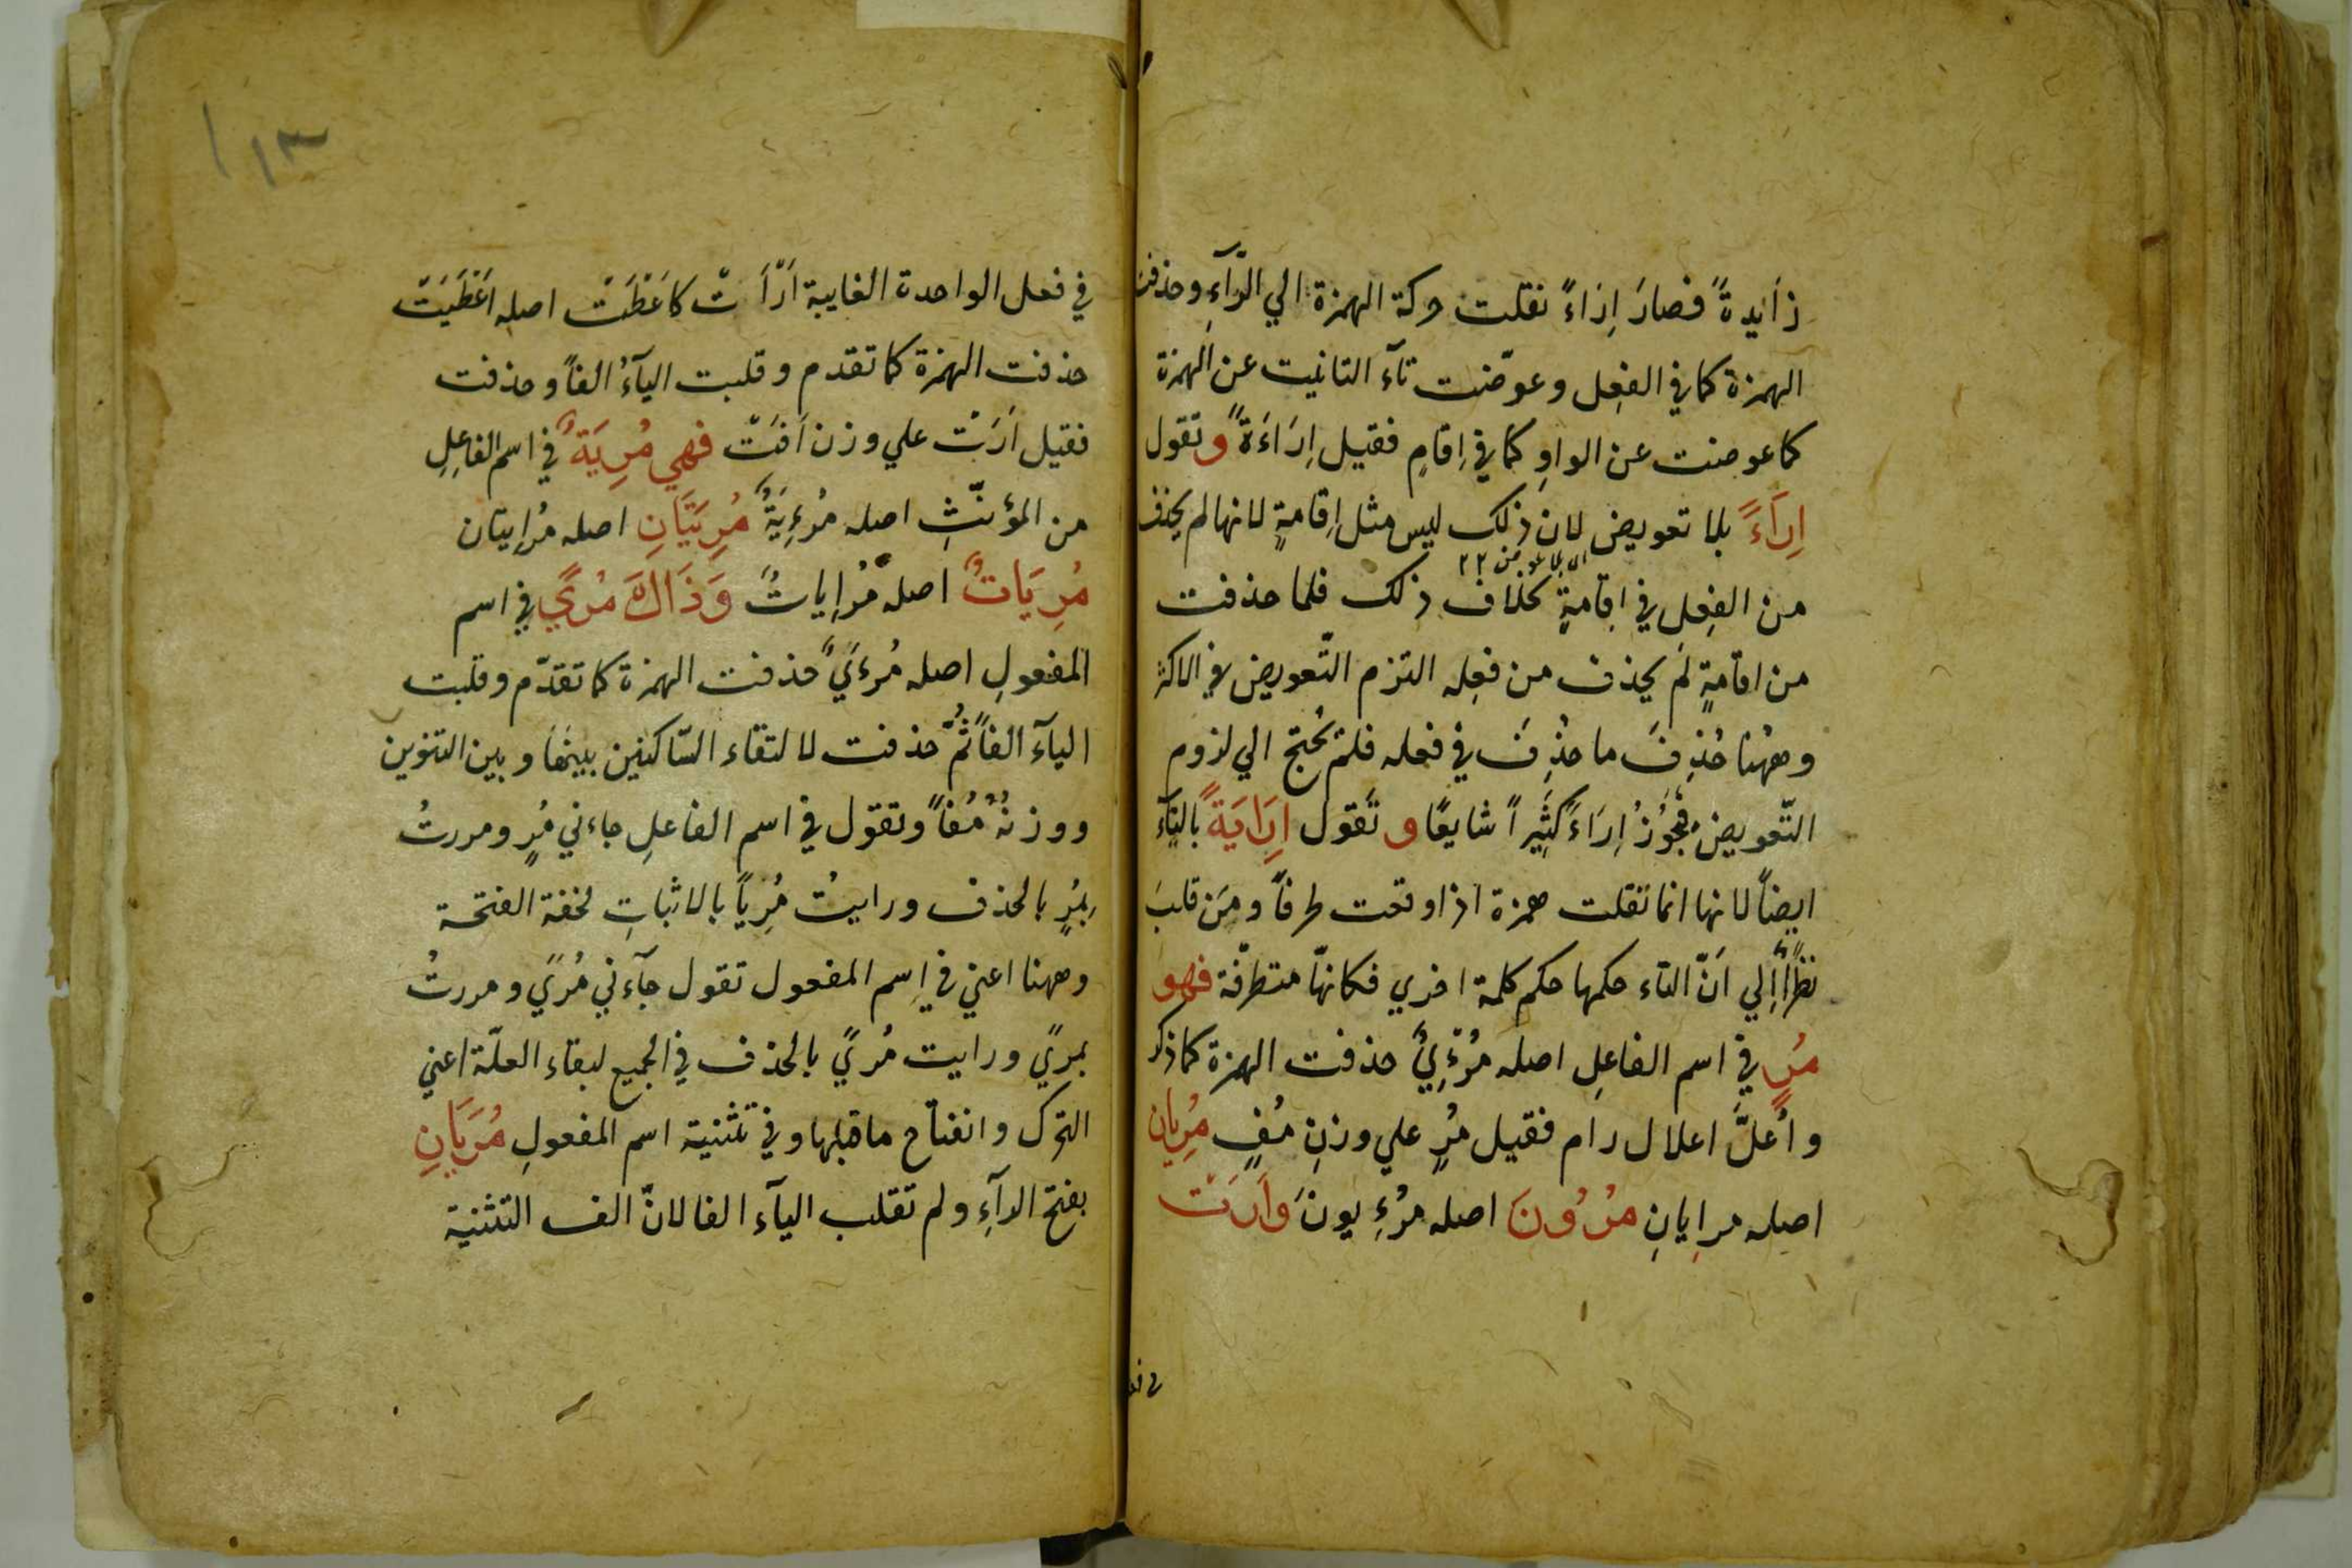 زأيدةً فصارَ اِرَاءً نقلت حركة الهمزة الي الرّآءِ وحذفت
الهمزة كما في الفعِل وعوّضت تآء التانيت عن الهمزة
كما عوضت عن الواوِ كما في اِقامٍ فقيل اِرَاءَةً وتقول
اِرَاءً بلا تعويض لان ذلك ليس مثل اِقامةٍ لانها لم يحذف
من الفعِل في اقامةٍ بخلاف ذلك فلما حذفت
من اقامةٍ لم يحذف من فعِله التزم التّعويض في الاكثر
وههُنا حُذِفَ ما حُذِفَ في فعله فلم يُحتج الي لزوم
التّعويض فيجُوزُ اِرَاءً كَثِيراً شايعًا و تَقول اِرَايَةً باليّآءِ
ايضاً لانها انما نَقلت همزة اذا وقعت طرفاً ومَن قلبَ
نظراً اِلي اَنّ التّاء حكمها حكم كلمة اخري فكانهّا متطرفّة فهو
مُرٍ في اسم الفاعِلِ اصله مُرْءِيٌ حذفت الهمزة كما ذكر
واُعلَّ اعلال رام فقيل مُرٍ علي وزنِ مُفٍ مُرِيان
اصله مرايانِ مرُوُنَ اصله مرُءِيونَ وَاَرَت
في فعل
١١٣
في فعل الواحدة الغايبة اَرْاَتْ كاَعْطَتْ اصله اَعْطَيَتْ
حذفت الهمزة كما تقدم وقلبت اليآءُ الفاً وحذفت
فقيل اَرَتْ علي وزن اَفَتْ فهي مُرِيَةٌ في اسم الفاعِلِ
من المؤنّثِ اصله مُرْءِيَةٌ مُرِيَتَانِ اصله مُرايتان
مُرِيَاتٌ اصله مُراِياتٌ وَذَاكَ مُرًي في اسم
المفعولِ اصله مُرءَيٌ حذفت الهمزة كما تقدّم وقلبت
اليآء الفاً ثُمَّ حذفت لالتقاء السّاكنين بينهَا وبين التنوين
ووزنُهُ مُفاً وتقول في اسم الفاعلِ جاءني مُرٍ ومررتُ
بِمُرٍ بالحذف ورايتُ مُرِياً بالاثباتِ لخفة الفتحة
وههنا اعني في اِسم المفعول تقول جآءني مُرًي ومررتُ
بمرًي ورايت مُرًي بالحذف في الجميع لبقاء العلّة اعني
التحرك وانفتاح ماقبلها وفي تثنية اسم المفعولِ مُرَيَانِ
بفتح الرآءِ ولم تقلب اليآء الفا لانّ الف التثنية